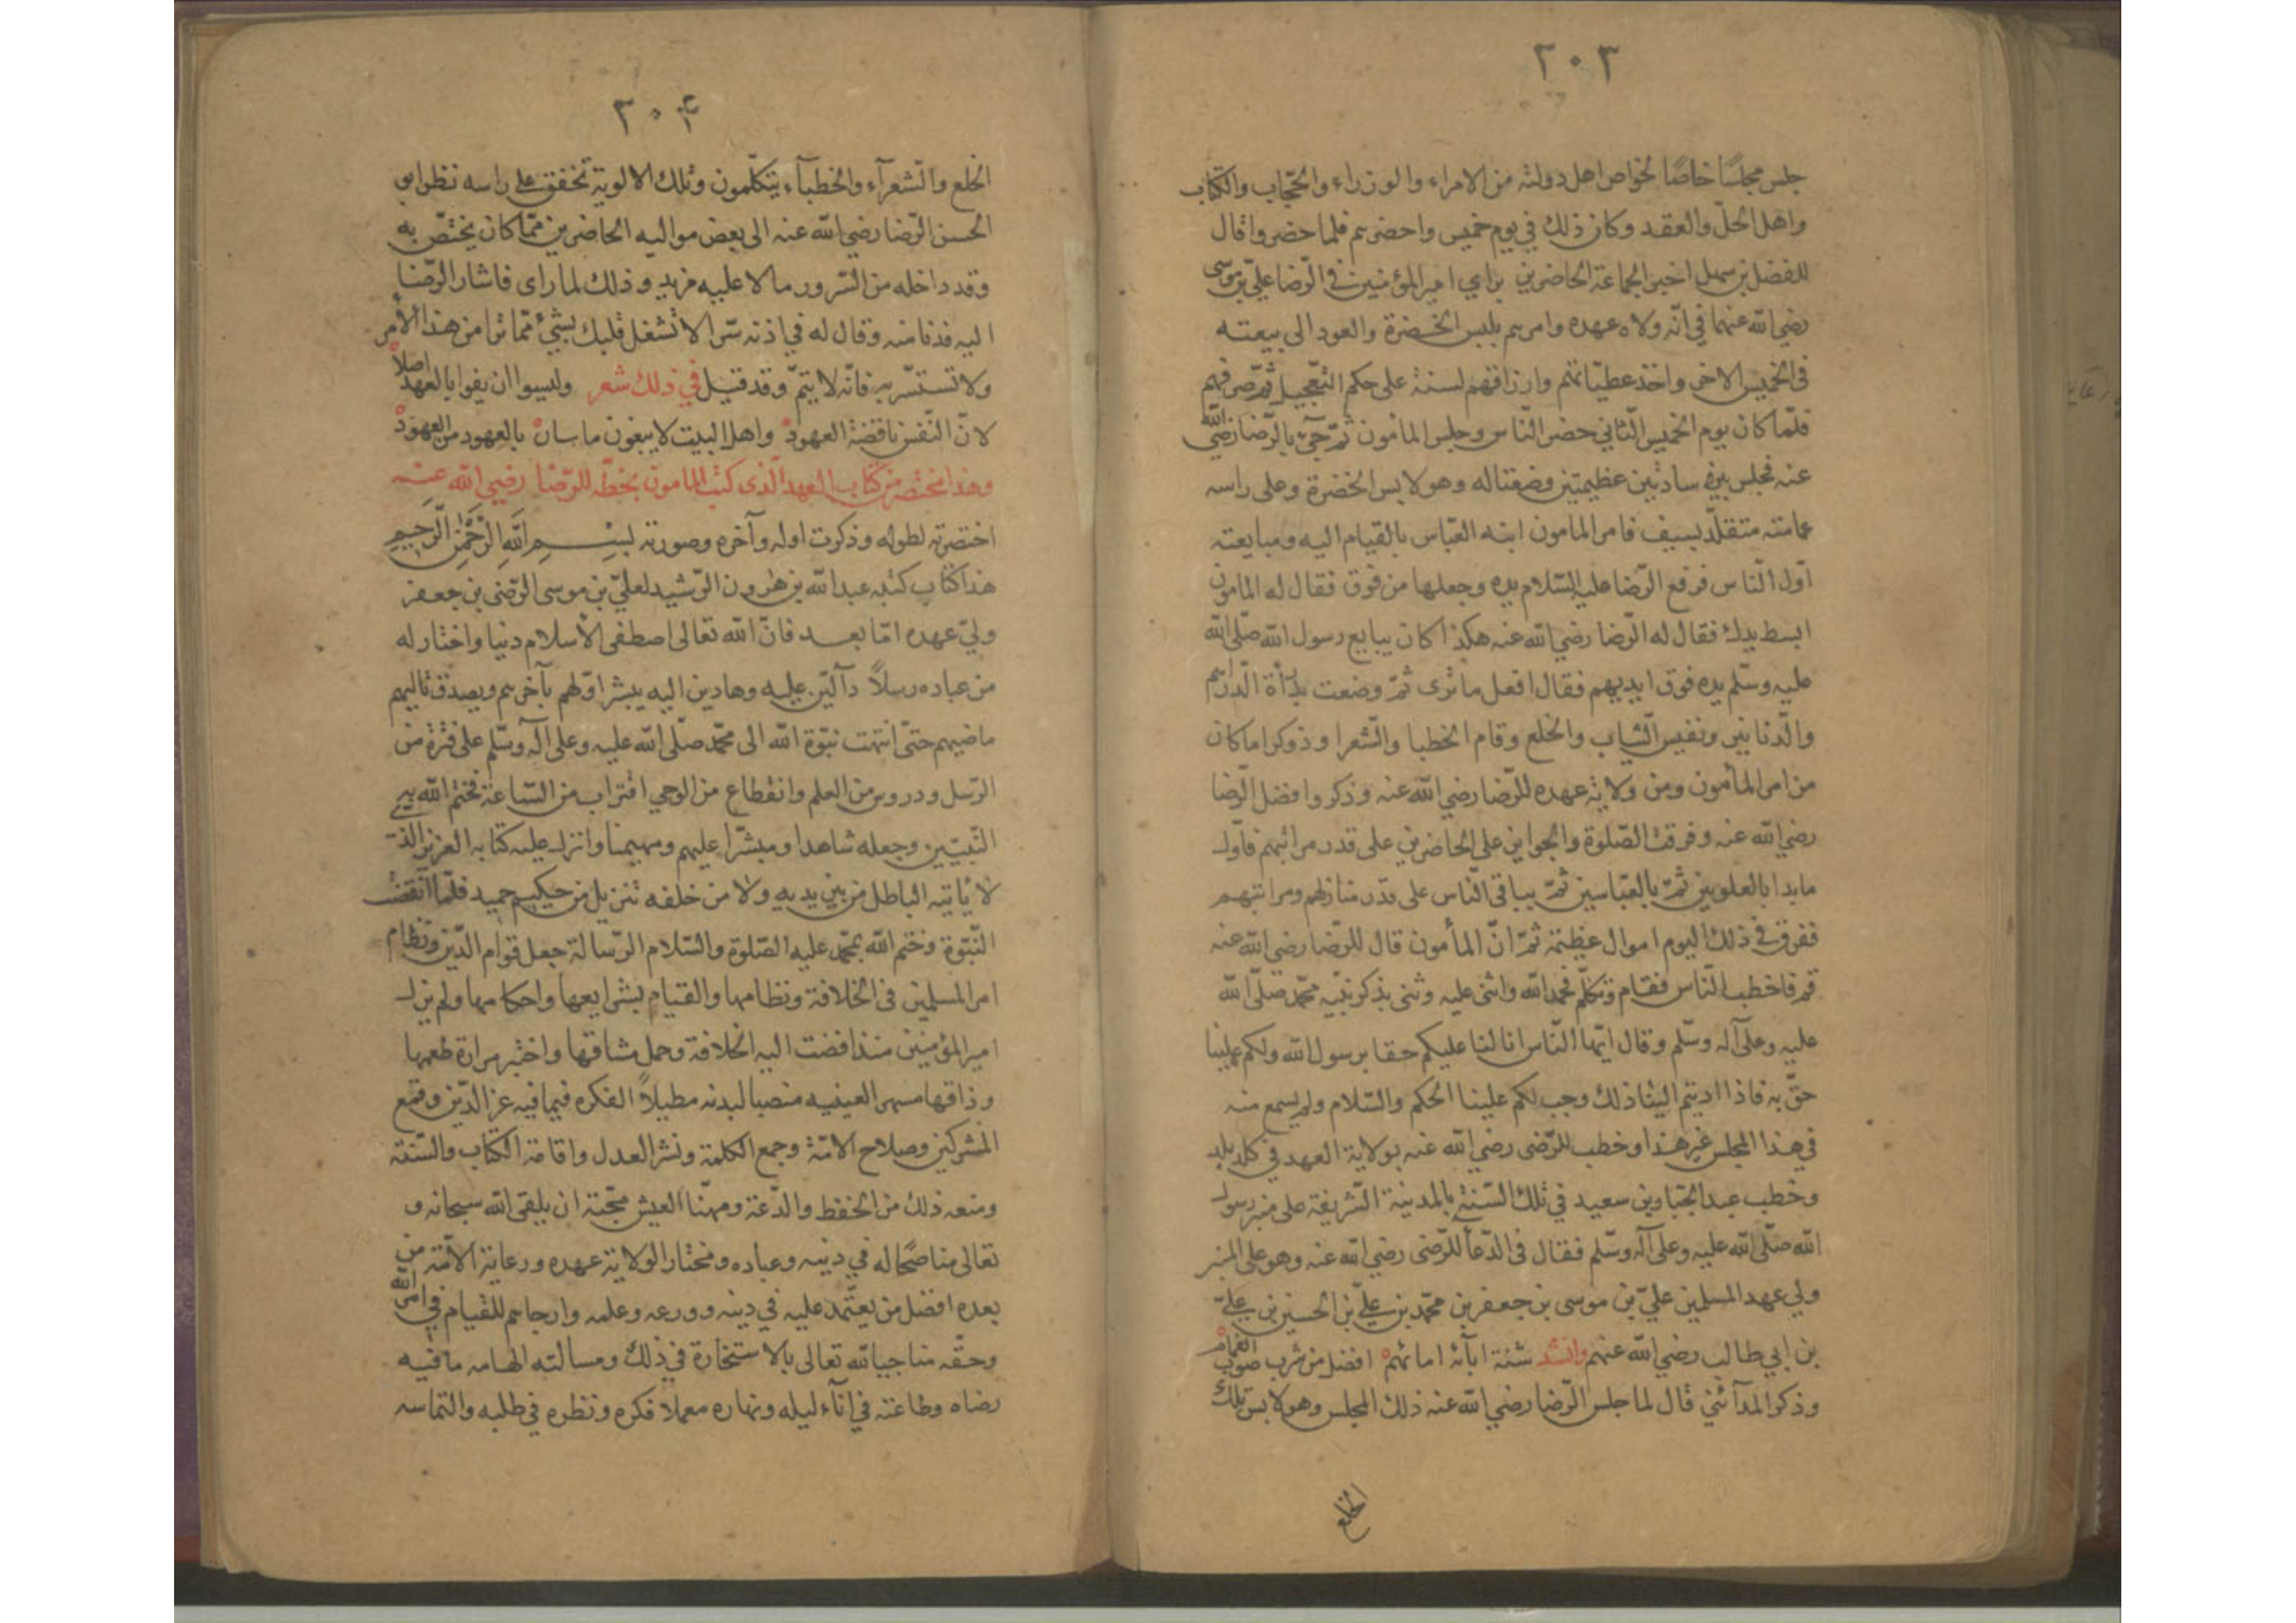 ٢٠٣
جلس مجلسًا خاصًا لخواص اهل دولته من الامراء والوزراء والحجّاب والكتّاب
واهل الحلّ والعقد وكان ذلك في يوم خميس واحضرهم فلما حضروا قال
للفضل بن سهل اخبر الجماعة الحاضرين براي امير المؤمنين في الرّضا عليّ بن موسى
رضي الله عنهما في انّه ولاه عهده وامرهم بلبس الخضرة والعود الى بيعته
في الخميس الاخر واخذ عطياتهم وارزاقهم لسنة على حكم التعّجيل ثمّ صرفهم
فلمّا كان يوم الخميس الثّاني حضر النّاس وجلس المامون ثمّ جيئ بالرّضا رضي الله
عنه فجلس بين وسادتين عظيمتين وضعتا له وهو لابس الخضرة وعلى راسه
عمامته متقلّد بسيف فامر المامون ابنه العبّاس بالقيام اليه ومبايعته
اوّل النّاس فرفع الرّضا عليه السّلام يده وجعلها من فوق فقال له المامون
ابسط يدك فقال له الرّضا رضي الله عنه هكذا كان يبايع رسول الله صلّى الله
عليه وسلّم يده فوق ايديهم فقال افعل ما ترى ثمّ وضعت بدرأة الدّراهم
والدّنانير ونفيس الثّياب والخلع وقام الخطبا والشّعرا وذوكرا ما كان
من امر المأمون ومن ولاية عهده للرّضا رضي الله عنه وذكروا فضل الرّضا
رضي الله عنه وفرقت الصّلوة والجواين على الحاضرين على قدر مراتبهم فاّول
ما بدا بالعلويين ثمّ بالعبّاسين ثمّ بباقي النّاس على قدر منازلهم ومراتبهم
ففرق في ذلك اليوم اموال عظيمة ثمّ انّ المأمون قال للرّضا رضي الله عنه
قم فاخطب النّاس فقام وتكلّم فحمد الله واثنى عليه وثنى بذكر نبّيه محمّد صلّى الله
عليه وعلى آله وسلّم وقال ايّها النّاس انا لنا عليكم حقا برسول الله ولكم علينا
حقّ به فاذا اديتم الينا ذلك وجب لكم علينا الحكم والسّلام ولم يسمع منه
في هذا المجلس غير هذا وخطب للرّضى رضي الله عنه بولاية العهد في كلّ بلد
وخطب عبد الجبّار بن سعيد في تلك السّنة بالمدينة الشّريفة على منبر رسول
الله صلّى الله عليه وعلى آله وسلّم فقال في الدّعاّ للرّضى رضي الله عنه وهو على المنبر
ولي عهد المسلمين عليّ بن موسى بن جعفر بن محمّد بن عليّ بن الحسين بن عليّ
بن ابي طالب رضي الله عنهم وانشد ستة اباّئه امائهم افضل من شرب صوب الغمام
وذكر المدآئني قال لما جلس الرّضا رضي الله عنه ذلك المجلس وهو لابس تلك
الخلع
٢٠٤
الخلع والشّعرآء والخطبآء يتكلّمون وتلك الالوية تخفق على راسه نظر ابو
الحسن الرّضا رضي الله عنه الى بعض مواليه الحاضرين ممّا كان يختصّ به
وقد داخله من السّرور ما لا عليه مزيد وذلك لما راى فاشار الرّضا
اليه فدنا منه وقال له في اذنه سّرا لا تشغل قلبك بشيئ ممّا ترا من هذا الأمر
ولا تستسّر به فانّه لا يتمّ وقد قيل في ذلك شعر وليسوا ان يفوا بالعهد اصلاً
لانّ النّفس ناقضة العهود واهل البيت لا يبغون ماسان بالعهود من العهود
وهذا مختصر من كتاب العهد الّذى كتب المامون بخطّه للرّضا رضي الله عنه
اختصرته لطوله وذكرت اوله وآخره وصورته بسم الله الرّحمن الرّحيم
هذا كتاب كتبه عبد الله بن هرون الرّشيد لعليّ بن موسى الرّضى بن جعفر
وليّ عهده امّا بعد فانّ الله تعالى اصطفى الأسلام دينا واختار له
من عباده رسلاً دآلّين عليه وهادين اليه يبشر اوّلهم بآخرهم ويصدق تاليهم
ماضيهم حتىّ انتهت نبّوة الله الى محمّد صلّى الله عليه وعلى آله وسلّم على فترة من
الرّسل ودروس من العلم وانقطاع من الوحي اقتراب من السّاعة فختم الله به
النّبيّين وجعله شاهدا ومبشّرا عليهم ومهيمنا وانزل عليه كتابه العزيز الذى
لا يأتيه الباطل من بين يديه ولا من خلفه تنزيل من حكيم حميد فلمّا انقضت
النّبّوة وختم الله بمحمّد عليه الصّلوة والسّلام الرّسالة جعل قوام الدّين ونظام
امر المسلمين في الخلافة ونظامها والقيام بشرايعها واحكامها ولم يزل
امير المؤمنين منذ افضت اليه الخلافة وحمل مشاقها واختبر مرارة طعمها
وذاقها مسهر العينيه منصبا لبدنه مطيلاً الفكره فيما فيه عزّ الدّين وقمع
المشركين وصلاح الامّة وجمع الكلمة ونشر العدل واقامة الكتاب والسّنّة
ومنعه ذلك من الخفظ والدّعة ومهنّا العيش محّبة ان يلقى الله سبحانه و
تعالى مناصحًا له في دينه وعباده ومختار الولاية عهده ورعاية الامّة من
بعده افضل من يعتّمد عليه في دينه وورعه وعلمه وارجاهم للقيام في امر الله
وحقّه مناجيا الله تعالى بالاستخارة في ذلك ومسالته الهامه ما فيه
رضاه وطاعته في انآء ليله ونهاره معملا فكره ونظره في طلبه والتماسه